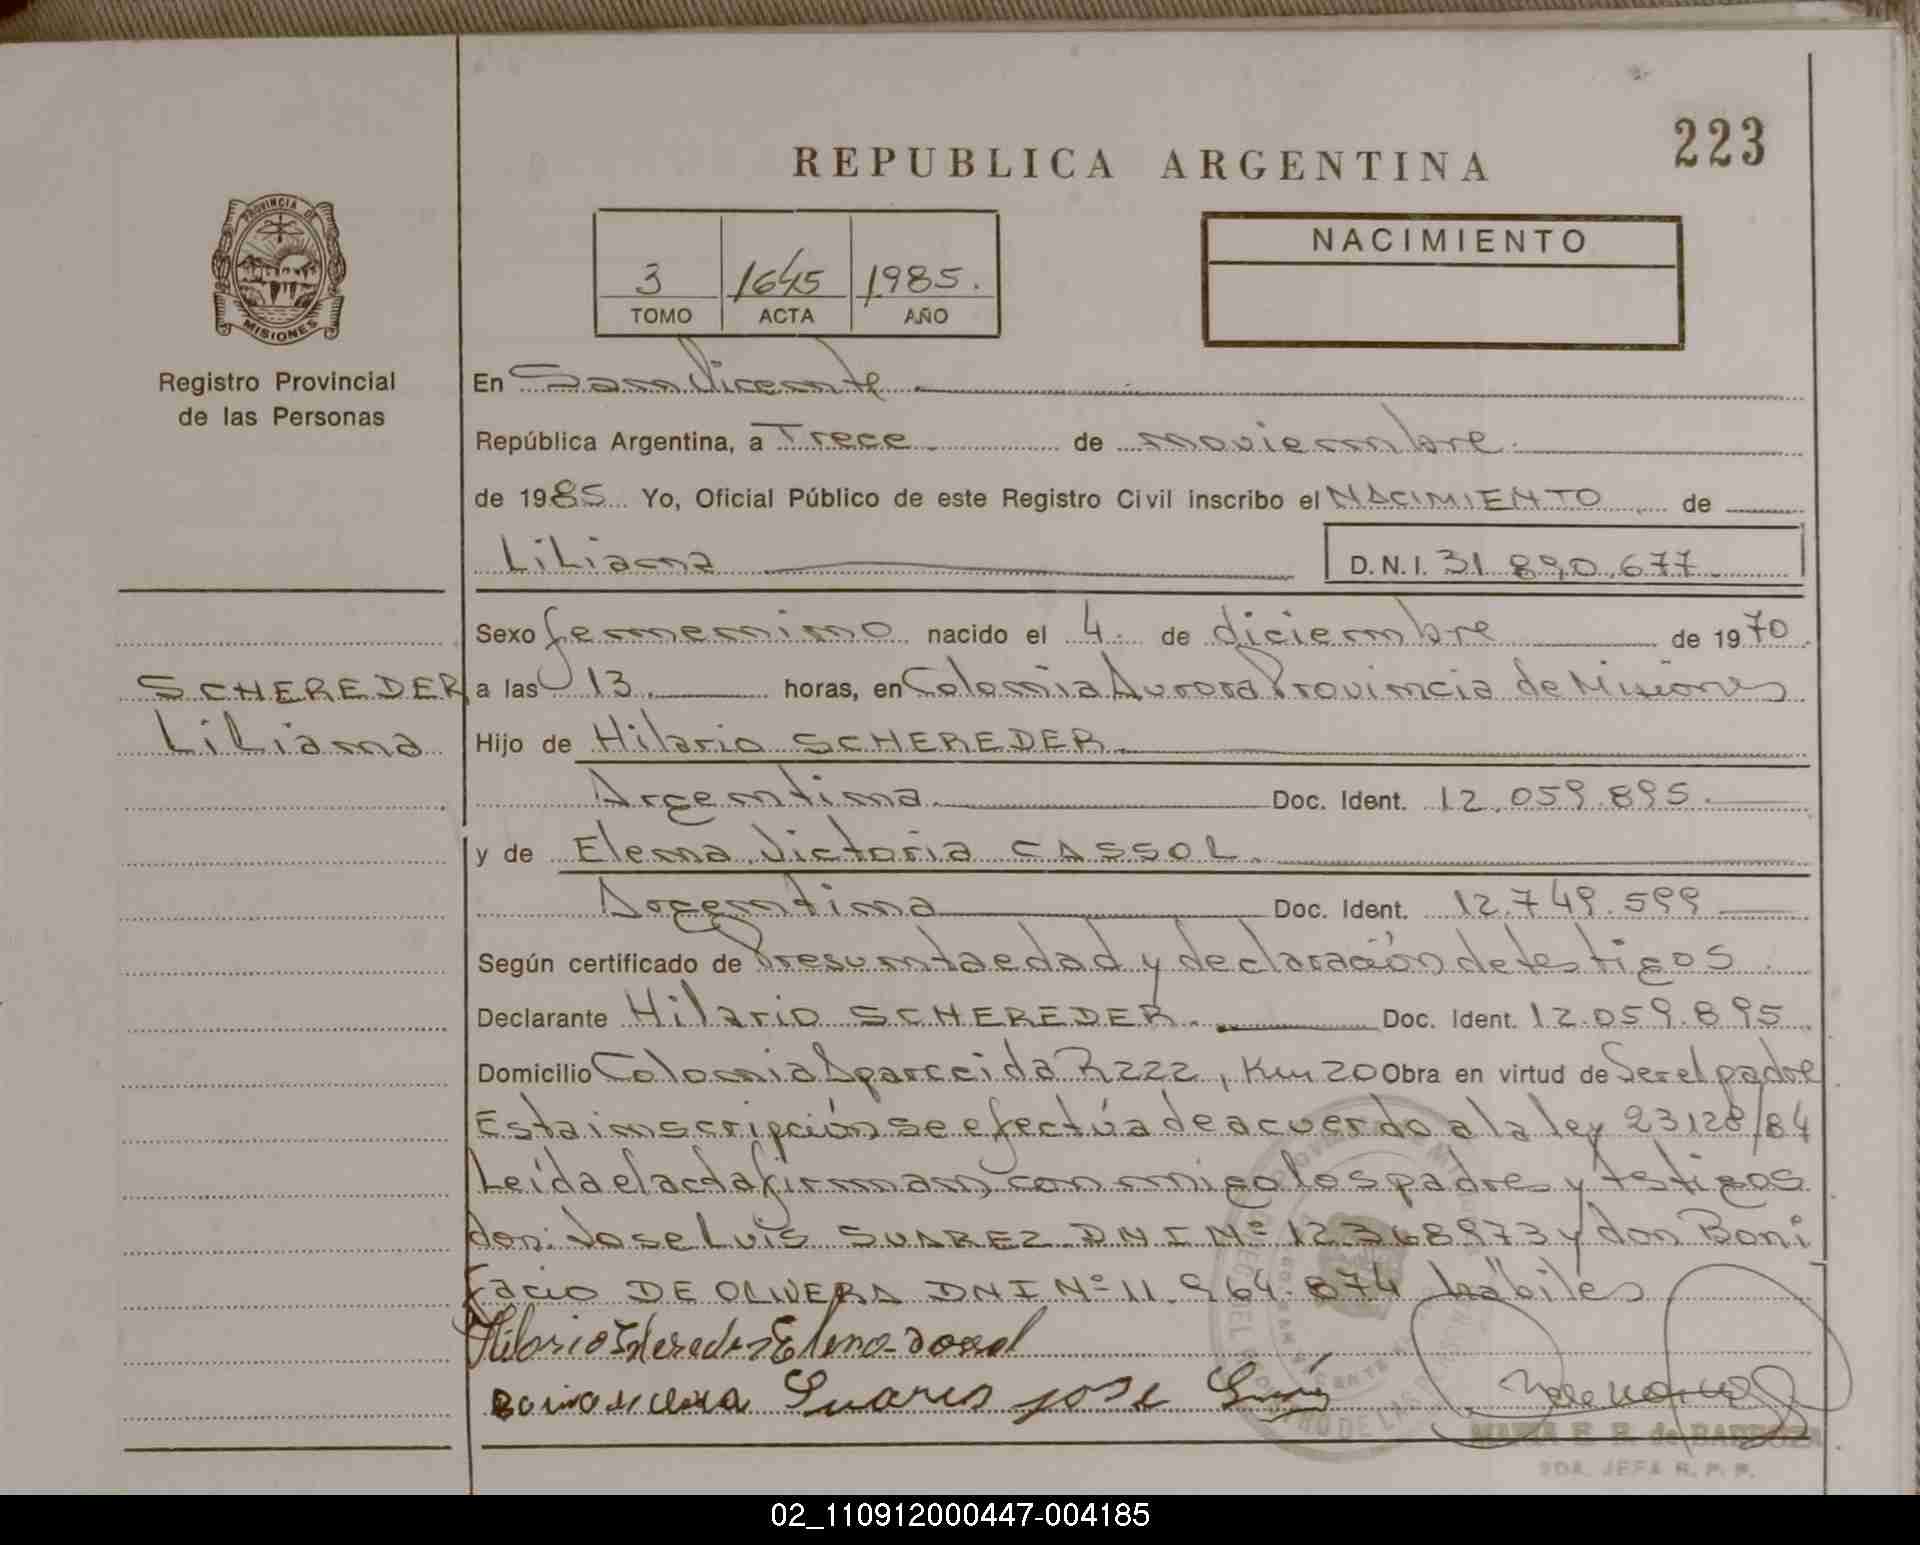 223
REPUBLICA ARGENTINA
PROVINCIA DE
MISIONES
Registro Provincial
de las Personas
3 1645 1985.
TOMO ACTA AÑO
NACIMIENTO
En San Vicente
República Argentina, a Trece de noviembre
de 1985 Yo, Oficial Público de este Registro Civil inscribo el NACIMIENTO de
Liliana D.N.I. 31.890.677
Sexo femenino nacido el 4 de diciembre de 1970
SCHEREDER
Liliana
a las 13 horas, en Colonia Aurora Provincia de Misiones
Hijo de Hilario SCHEREDER
Argentina Doc. Ident. 12.059.895
y de Elena Victoria CASSOL
Argentina Doc. Ident. 12.749.599
Según certificado de Presunta edad y declaración de testigos
Declarante Hilario SCHEREDER. Doc. Ident. 12.059.895
Domicilio Colonia Aparecida R222, Km 20 Obra en virtud de Ser el padre
Esta inscripción se efectúa de acuerdo a la ley 23128/84
Leída el acta firman conmigo los padres y testigos
don: Jose Luis SUAREZ DNI Nº 12.368973 y don Boni
facio DE OLIVERA DNI Nº 11.964.874 hábiles
Hilario Schereder Elena
Suares jose Luis
MARIA E. B. de BARBOZA
2DA. JEFA R. P. P.
02_110912000447-004185